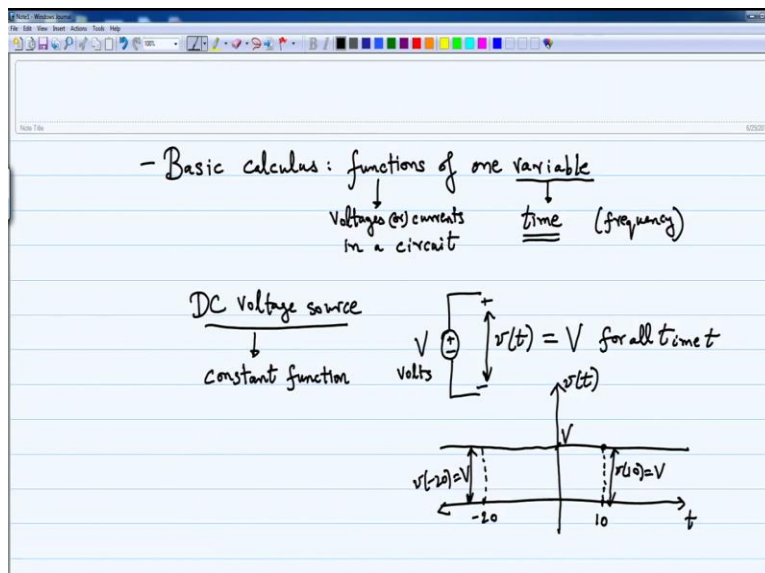 Note1 - Windows Journal
File Edit View Insert Actions Tools Help
100%
B I
Note Title
- Basic calculus: functions of one variable
Voltages (or) currents
in a circuit
time (frequency)
DC voltage source
constant function
V
volts
+
-
v(t) = V for all time t
v(t)
V
v(-20)=V
v(10)=V
-20
10
t